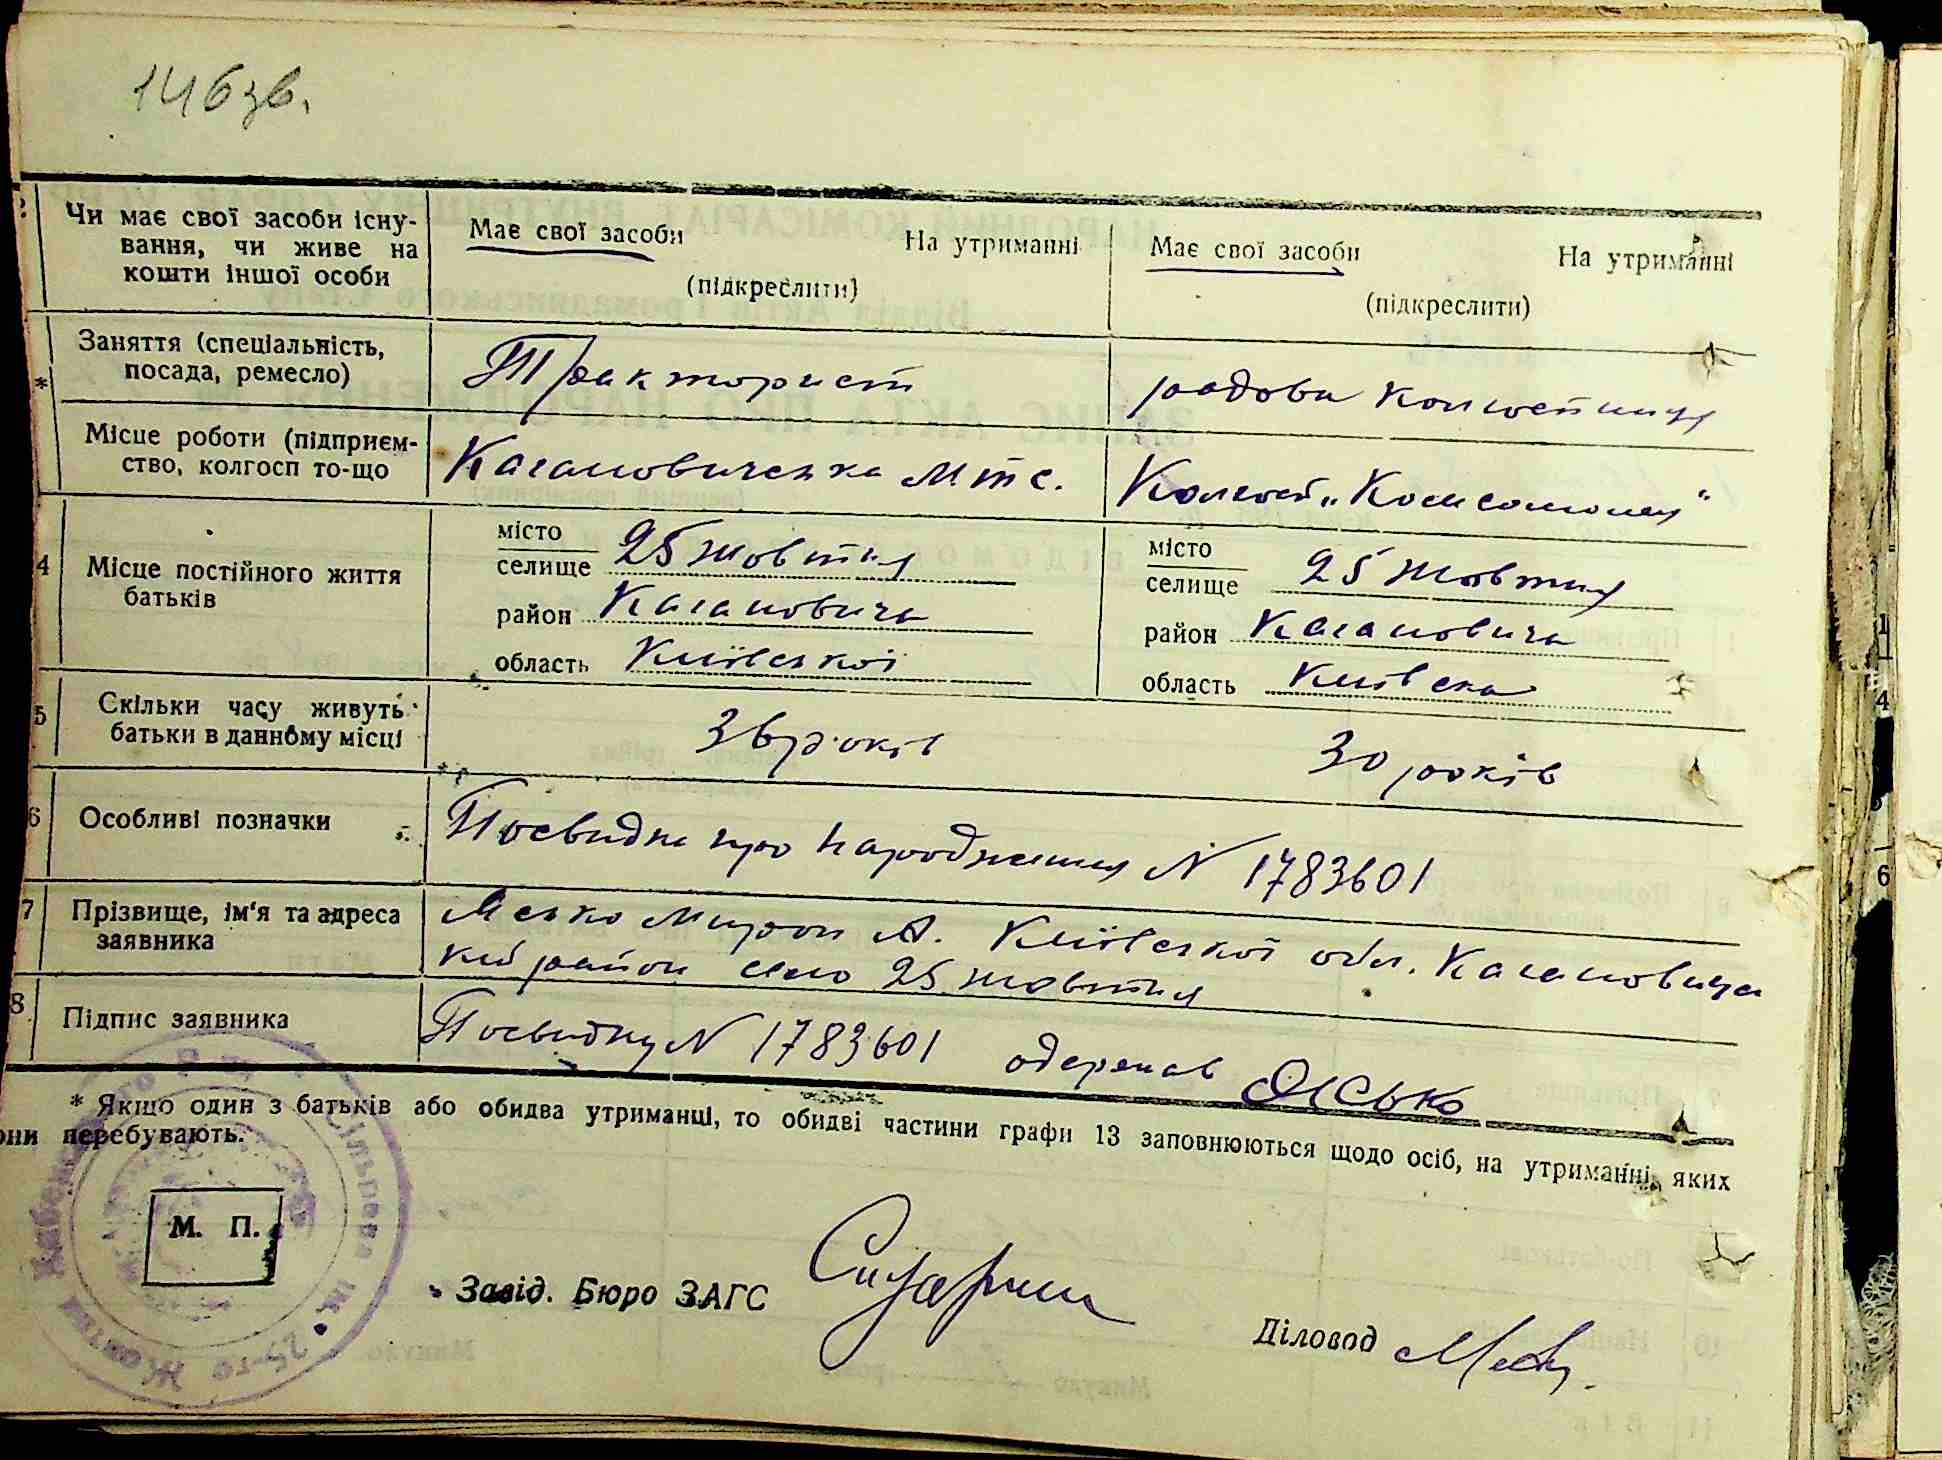 146зв.
Чи має свої засоби існу-
вання, чи живе на
кошти іншої особи
Має свої засоби На утриманні
(підкреслити)
Має свої засоби На утриманні
(підкреслити)
* Заняття (спеціальність,
посада, ремесло)
Тракторист
рядова колгоспниця
Місце роботи (підприєм-
ство, колгосп то-що
Кагановичська МТС.
Колгосп „Комсомолец“
4 Місце постійного життя
батьків
місто
селище 25 Жовтня
район Кагановича
область Київської
місто
селище 25 Жовтня
район Кагановича
область Київська
5 Скільки часу живуть
батьки в данному місці
36 років
30 років
6 Особливі позначки
Посвідка про народження N 1783601
7 Прізвище, ім'я та адреса
заявника
Ясько Мирон А. Київської обл. Кагановича
район село 25 жовтня
8 Підпис заявника
Посвідку N 1783601 одержав Ясько
* Якщо один з батьків або обидва утриманці, то обидві частини графи 13 заповнюються щодо осіб, на утриманні яких
они перебувають.
М. П.
Сільрада ім. 25-го Жовтня
Завід. Бюро ЗАГС
Діловод